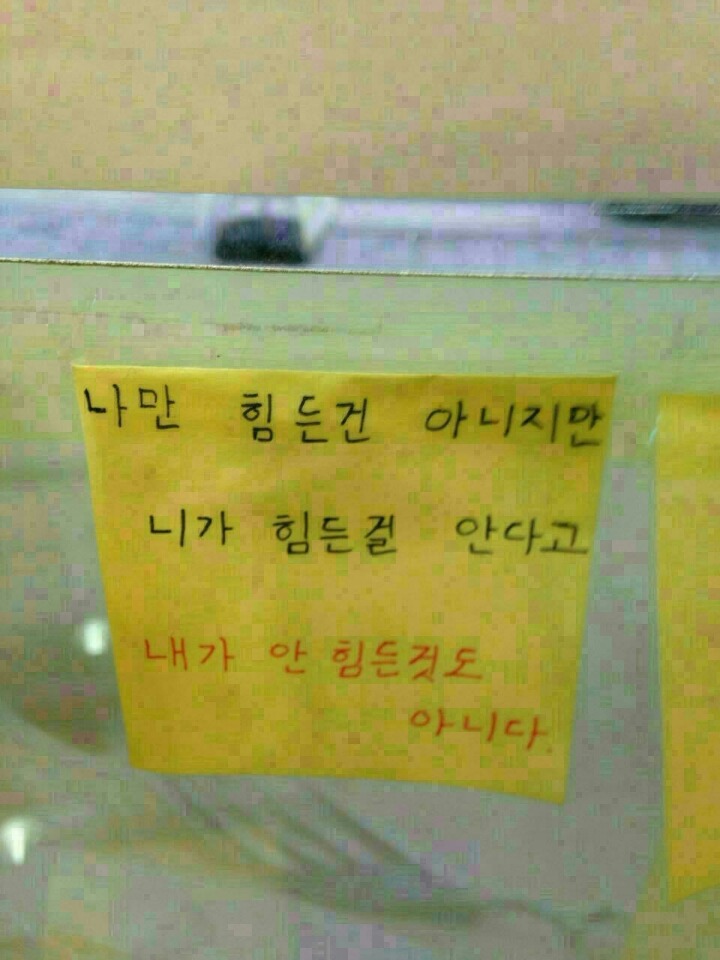 나만 힘든건 아니지만
니가 힘든걸 안다고
내가 안 힘든것도
아니다